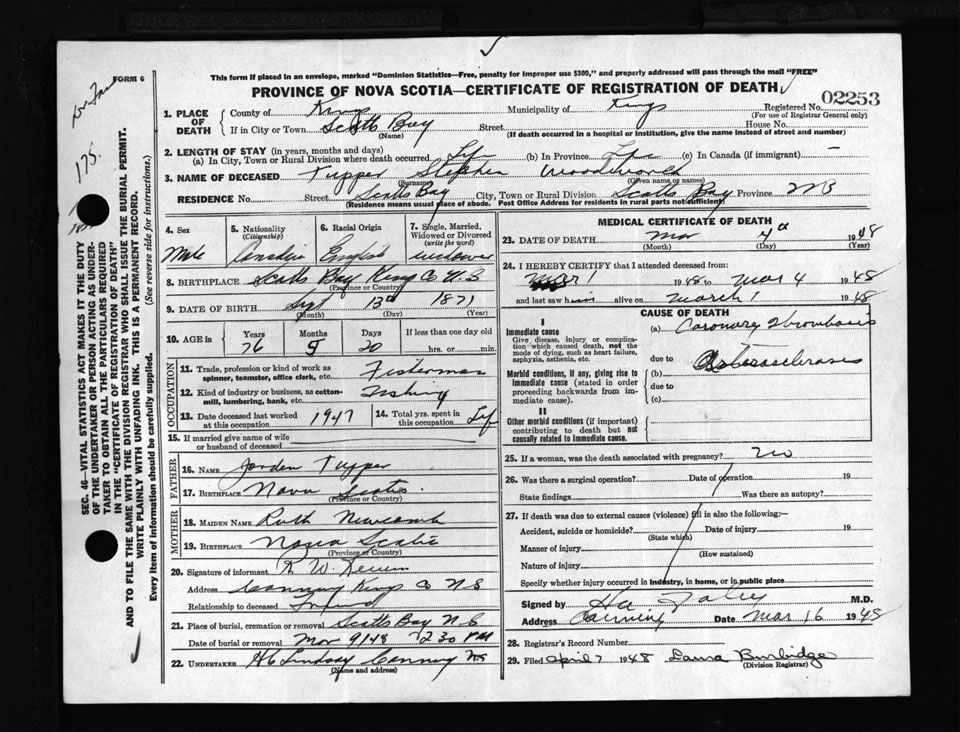 This form if placed in an envelope, marked "Dominion Statistics—Free, penalty for improper use $300," and properly addressed will pass through the mail "FREE"
FORM 6
PROVINCE OF NOVA SCOTIA—CERTIFICATE OF REGISTRATION OF DEATH
02253
1. PLACE OF DEATH County of Kings Municipality of Kings Registered No.
(For use of Registrar General only)
If in City or Town Scotts Bay Street House No.
(Name) (If death occurred in a hospital or institution, give the name instead of street and number)
2. LENGTH OF STAY (in years, months and days)
(a) In City, Town or Rural Division where death occurred Life (b) In Province Life (c) In Canada (if immigrant) —
3. NAME OF DECEASED Tupper Stephen Woodworth
(Surname) (Given name or names)
RESIDENCE No. Street Scotts Bay City, Town or Rural Division Scotts Bay Province
(Residence means usual place of abode. Post Office Address for residents in rural parts not sufficient)
4. Sex 5. Nationality (Citizenship) 6. Racial Origin 7. Single, Married, Widowed or Divorced (write the word)
Male Canadian English widower
8. BIRTHPLACE Scotts Bay Kings Co N.S
(Province or Country)
9. DATE OF BIRTH Sept 13th 1871
(Month) (Day) (Year)
10. AGE in Years Months Days If less than one day old
76 5 20 hrs. or min.
OCCUPATION
11. Trade, profession or kind of work as spinner, teamster, office clerk, etc. Fisherman
12. Kind of industry or business, as cotton-mill, lumbering, bank, etc. Fishing
13. Date deceased last worked at this occupation 1947 14. Total yrs. spent in this occupation Life
15. If married give name of wife or husband of deceased
FATHER
16. NAME Jorden Tupper
17. BIRTHPLACE Nova Scotia
(Province or Country)
MOTHER
18. MAIDEN NAME Ruth Newcomb
19. BIRTHPLACE Nova Scotia
(Province or Country)
20. Signature of informant R W
Address Canning Kings Co N S
Relationship to deceased Friend
21. Place of burial, cremation or removal Scotts Bay N.S
Date of burial or removal Mar 9 1948 2 30 PM
22. UNDERTAKER Lindsay Canning NS
(Name and address)
MEDICAL CERTIFICATE OF DEATH
23. DATE OF DEATH Mar 4th 1948
(Month) (Day) (Year)
24. I HEREBY CERTIFY that I attended deceased from:
1948 to Mar 4 1948
and last saw him alive on March 1 1948
CAUSE OF DEATH
I
Immediate cause (a) Coronary Thrombosis
Give disease, injury or complication which caused death, not the mode of dying, such as heart failure, asphyxia, asthenia, etc.
due to
Morbid conditions, if any, giving rise to immediate cause (stated in order proceeding backwards from immediate cause). (b)
due to
(c)
II
Other morbid conditions (if important) contributing to death but not causally related to immediate cause.
25. If a woman, was the death associated with pregnancy? no
26. Was there a surgical operation? Date of operation 19
State findings Was there an autopsy?
27. If death was due to external causes (violence) fill in also the following:—
Accident, suicide or homicide? Date of injury 19
(State which)
Manner of injury
(How sustained)
Nature of injury
Specify whether injury occurred in industry, in home, or in public place
Signed by M.D.
Address Canning Date Mar 16 1948
28. Registrar's Record Number
29. Filed April 7 1948 Laura Burbidge
(Division Registrar)
175.
SEC. 46—VITAL STATISTICS ACT MAKES IT THE DUTY
OF THE UNDERTAKER OR PERSON ACTING AS UNDER-
TAKER TO OBTAIN ALL THE PARTICULARS REQUIRED
IN THE "CERTIFICATE OF REGISTRATION OF DEATH"
AND TO FILE THE SAME WITH THE DIVISION REGISTRAR WHO SHALL ISSUE THE BURIAL PERMIT.
WRITE PLAINLY WITH UNFADING INK. THIS IS A PERMANENT RECORD.
Every item of information should be carefully supplied. (See reverse side for instructions.)